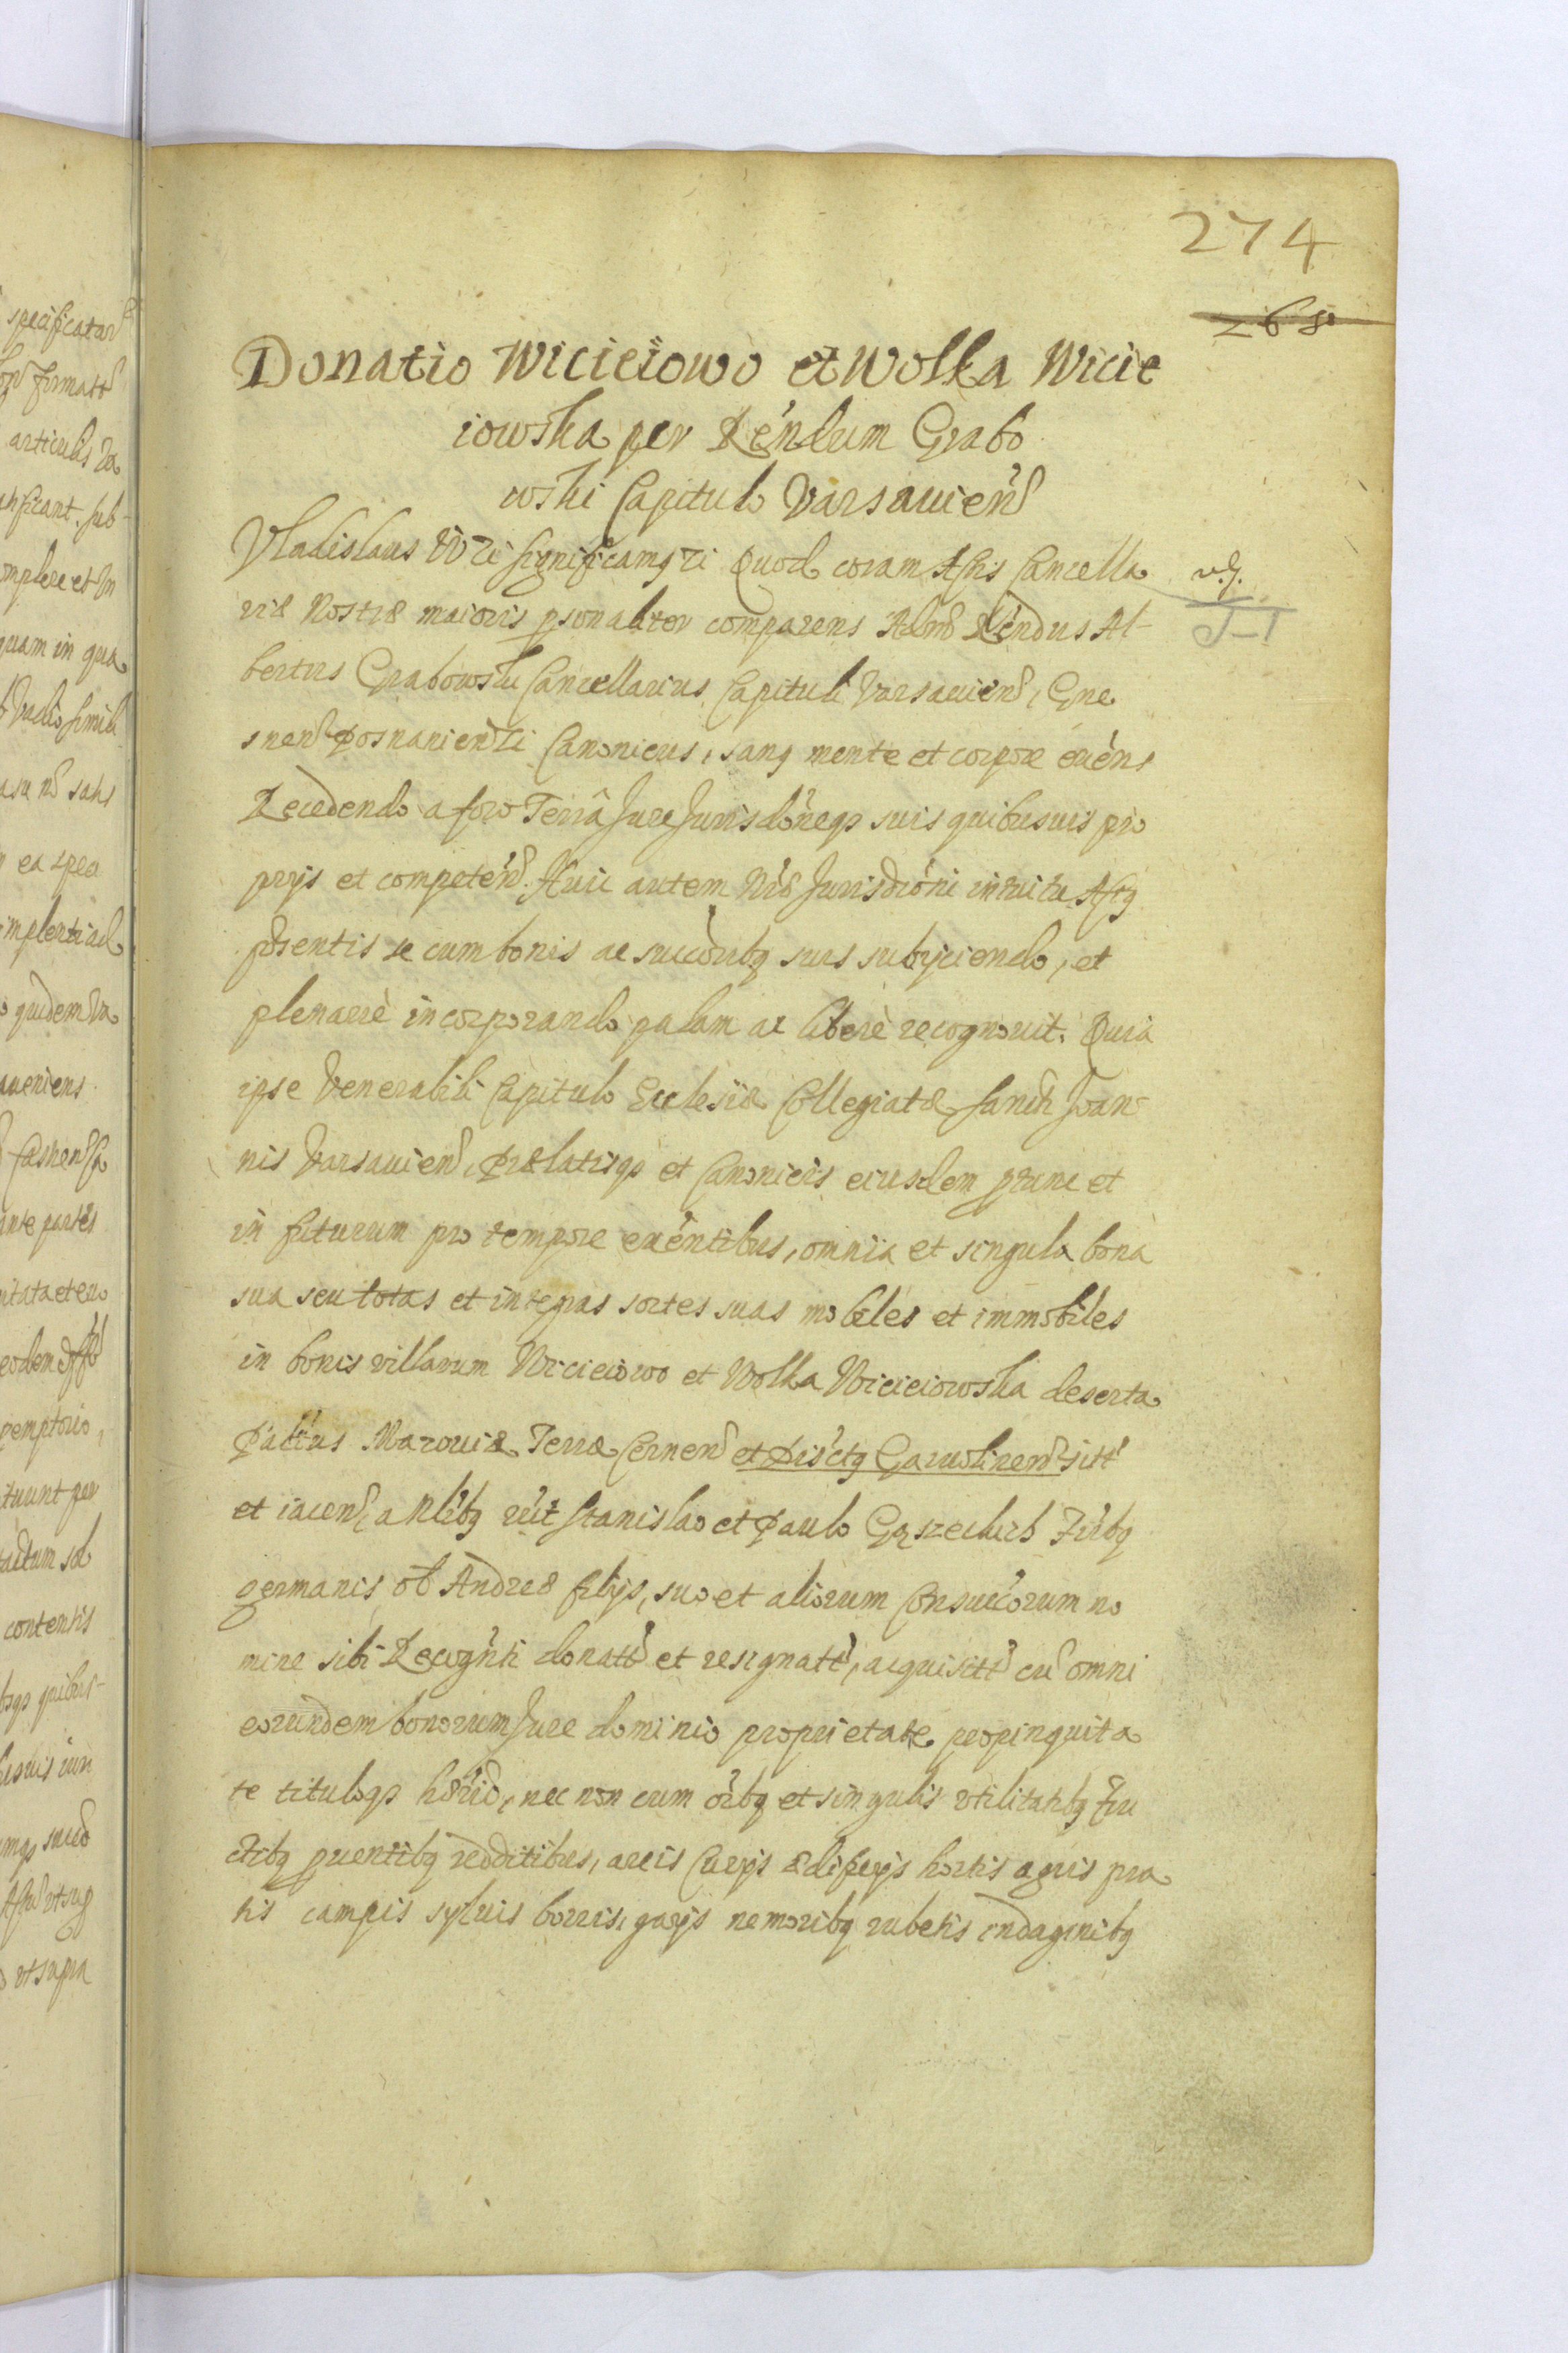 274
268
Donatio Wicieiowo et Wolka Wicie
iowska per Rendum Grabo
wski Capitulo Varsauien
Vladislaus IV etc significamus etc Quod coram Actis Cancella
riæ Nostræ maioris psonaliter comparens Adm Rendus Al-
bertus Grabowski Cancellarius Capituli Varsauien, Gne
snen Posnanien etc Canonicus, sanus mente et corpore exens
Recedendo a foro Terra Jure Jurisdoneqs suis quibusuis pro
prijs et competen. Huic autem Nræ Jurisdictioni intuitu Actus
pñsentis se cum bonis ac succoribus suis subijciendo, et
plenarie incorporando palam ac libere recognouit. Quia
ipse Venerabili Capitulo Ecclesiæ Collegiatæ Sancti Joan
nis Varsauien, Prælatisqs et Canonicis eiusdem pnunc et
in futurum pro tempore exentibus, omnia et singula bona
sua seu totas et integras sortes suas mobiles et immobiles
in bonis villarum Wicieiowo et Wolka Wicieiowska deserta
Pallus Mazouiæ Terra Cernen et Disctus Garwolinen sitt
et iacen, a Nlibus reit Stanislao et Paulo Gąszeckich Fribus
germanis, ol Andreæ filijs, suo et aliorum Consuccorum no
mine sibi Recognti donatt et resignatt, acquisitt cu omni
eorundem bonorum Jure dominio proprietate propinquita
te tituloqs hærid, nec non cum oibus et singulis vtilitatibus fru
ctibus puentibus redditibus, areis Curijs ædificijs hortis agris pra
tis campis syluis borris, gaijs nemoribus rubetis indaginibus